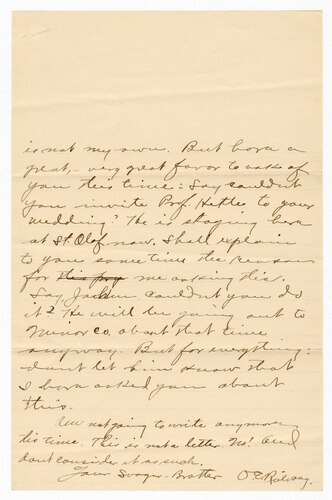 is not my own. But born a
great, - very great favor to ask of
you this time: Say couldn't
you invite Prof. Hettle to your
wedding? He is staying here
at St. Olaf now. Shall explain
to you some time the reasons
for me asking this.
Say, couldn't you do
it? He will be going out to
Minor Co. about that time
anyway. But for everything:
don't let him know that
I born asked you about
this.
Um not going to write anymore
tis time. This is not a letter No! and
dont consider it as such.
Your Svoger-Brother O E Rölvaag.